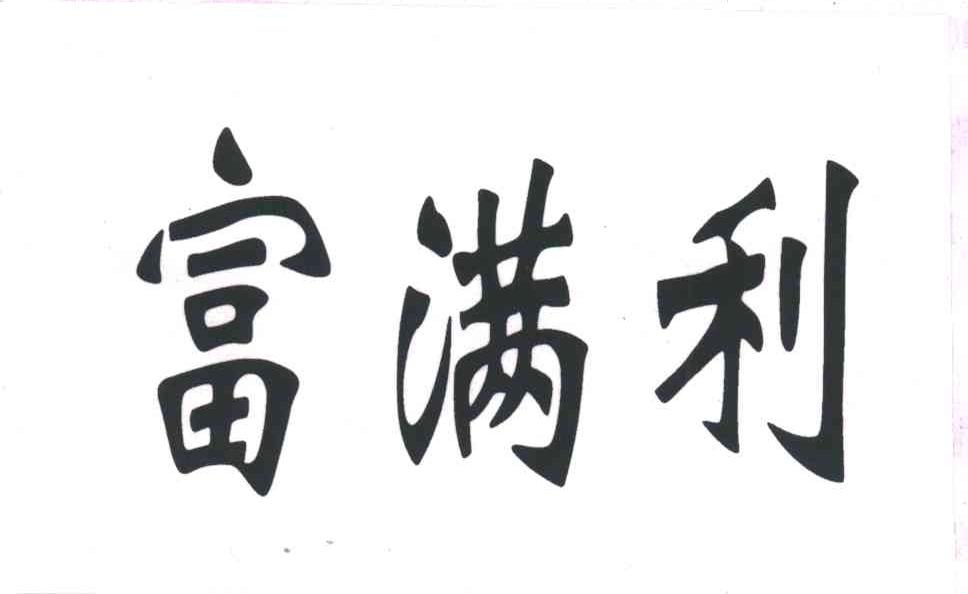 富满利